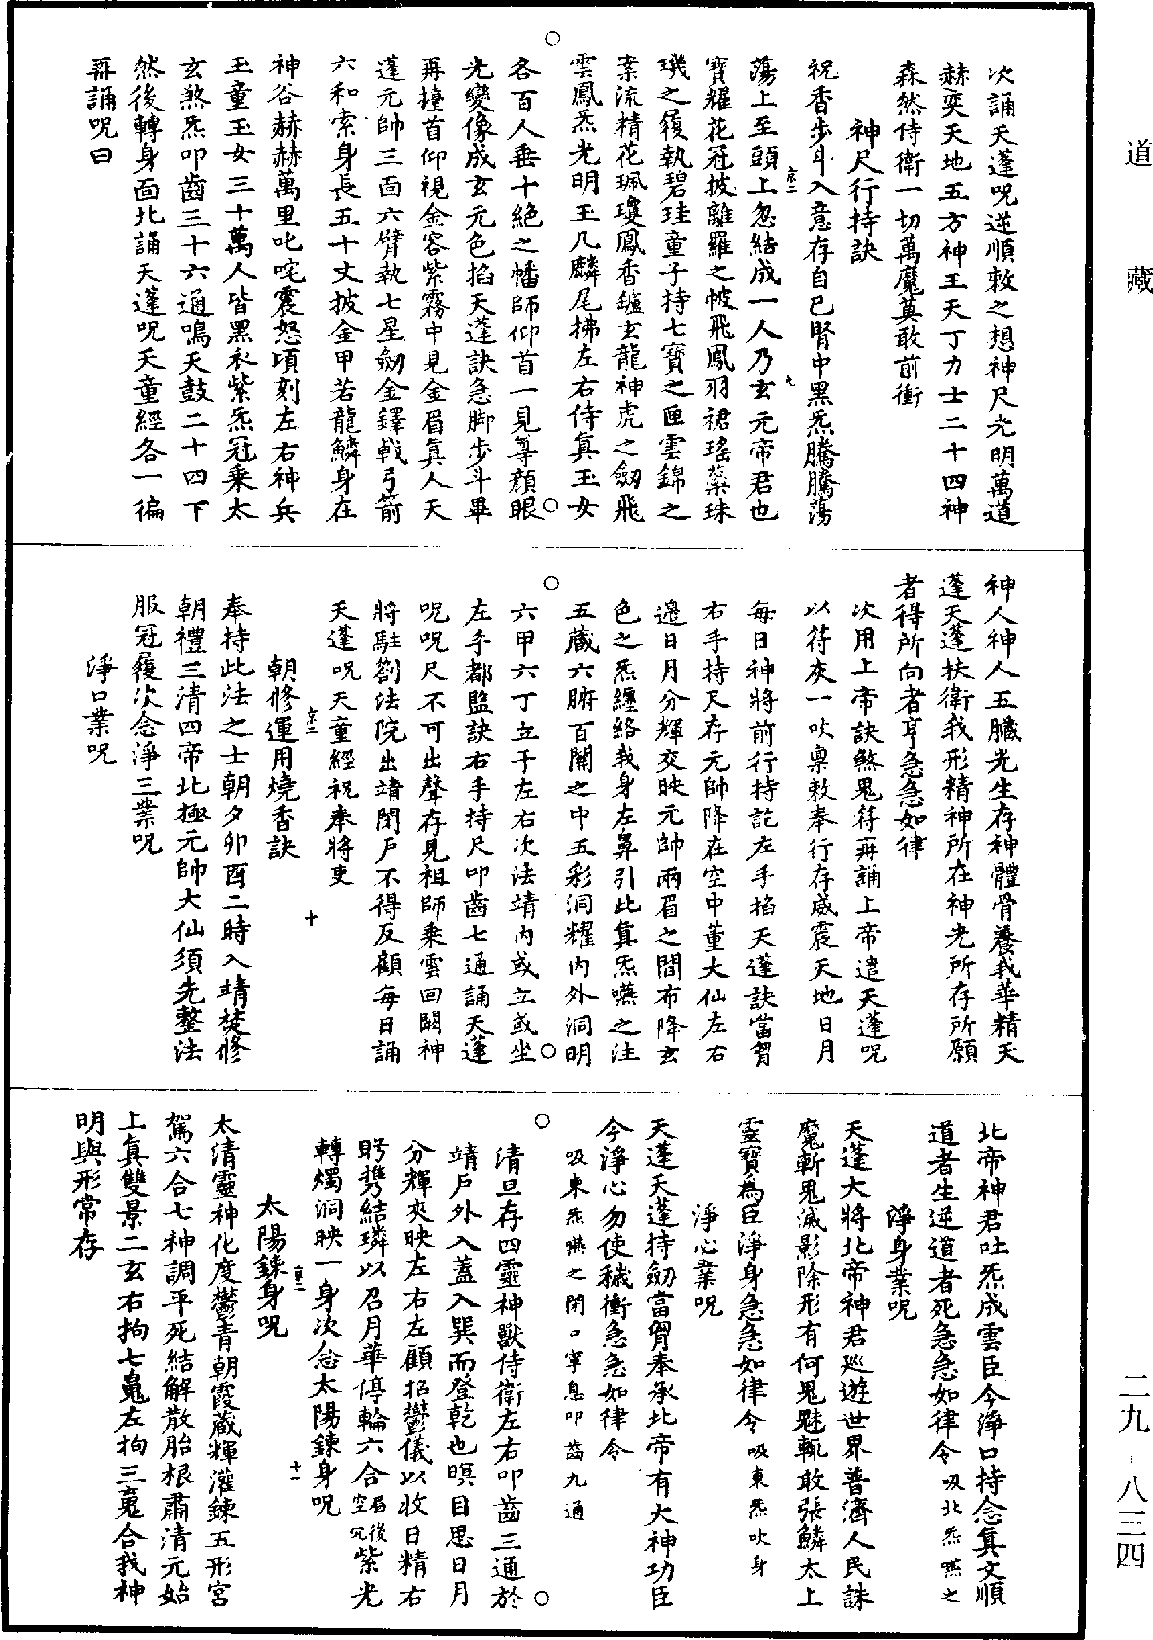 道藏
二九-八三四
次誦天蓬呪逆順敕之想神尺光明萬道
赫奕天地五方神王天丁力士二十四神
森然侍衛一切萬魔莫敢前衝
神尺行持訣
祝香步斗入意存自己腎中黑炁騰騰蕩
蕩上至頭上忽結成一人乃玄元帝君也
寶耀花冠披離羅之帔飛鳳羽裙瑤蘂珠
璣之履執碧珪童子持七寶之匣雲錦之
柰流精花珮瓊鳳香鑪玄龍神虎之劒飛
雲鳳炁光明玉几麟尾拂左右侍真玉女
各百人垂十絕之幡師仰首一見尊顏眼
光變像成玄元色掐天蓬訣急脚步斗畢
再擡首仰視金容紫霧中見金眉真人天
蓬元帥三面六臂執七星劒金鐸戟弓箭
六和索身長五十丈披金甲若龍鱗身在
神谷赫赫萬里叱咤震怒頃刻左右神兵
玉童玉女三十萬人皆黑衣紫炁冠乘太
玄煞炁叩齒三十六通鳴天鼓二十四下
然後轉身面北誦天蓬呪天童經各一徧
再誦呪曰
神人神人五臟光生存神體骨養我華精天
蓬天蓬扶衛我形精神所在神光所存所願
者得所向者亨急急如律
次用上帝訣煞鬼符再誦上帝遣天蓬呪
以符灰一吹稟敕奉行存威震天地日月
每日神將前行持訖左手掐天蓬訣當胷
右手持尺存元帥降在空中董大仙左右
邊日月分輝交映元帥兩眉之間布降玄
色之炁纏絡我身左鼻引此真炁嚥之注
五藏六腑百關之中五彩洞耀內外洞明
六甲六丁立于左右次法靖內或立或坐
左手都監訣右手持尺叩齒七通誦天蓬
呪呪尺不可出聲存見祖師乘雲回闕神
將駐劄法院出靖閉戶不得反顧每日誦
天蓬呪天童經祝奉將吏
朝修運用燒香訣
奉持此法之士朝夕卯酉二時入靖焚修
朝禮三清四帝北極元帥大仙須先整法
服冠履次念淨三業呪
淨口業呪
北帝神君吐炁成雲臣今淨口持念真文順
道者生逆道者死急急如律令吸北炁嚥之
淨身業呪
天蓬大將北帝神君巡遊世界普濟人民誅
魔斬鬼滅影除形有何鬼魅輒敢張鱗太上
靈寶為臣淨身急急如律令吸東炁吹身
淨心業呪
天蓬天蓬持劒當胷奉承北帝有大神功臣
今淨心勿使穢衝急急如律令
吸東炁嚥之閉口寧息叩齒九通
清旦存四靈神獸侍衛左右叩齒三通於
靖戶外入蓋入巽而登乾也瞑目思日月
分輝夾映左右左顧招鬱儀以收日精右
眄携結璘以召月華停輪六合眉後空冗紫光
轉燭洞映一身次念太陽鍊身呪
太陽鍊身呪
太清靈神化度鬱青朝霞藏輝灌鍊五形宮
駕六合七神調平死結解散胎根肅清元始
上真雙景二玄右拘七鬼左拘三䰟合我神
明與形常存